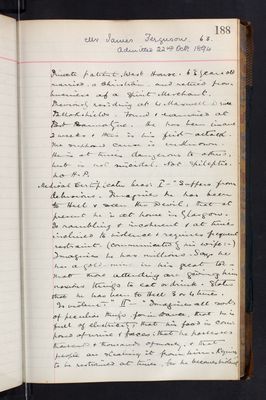 188
Mr James Ferguson 63.
Admitted 22nd Oct. 1894
Private patient, West House. 63 years old
married, a Christian, and retired from
business of a Spirit Merchant.
Previously residing at 6 Maxwell Drive
Pollokshields. Found & examined at
. He has been insane
2 weeks & this is his first attack.
The supposed cause is unknown.
He is at times dangerous to others,
but is not suicidal. Not epileptic.
no H.P.
Medical Certificates bear: I - "Suffers from
delusions. Imagines he has been
to Hell & seen the Devil; that at
present he is at home in Glasgow.
Is rambling & incoherent & at times
inclined to violence & requires frequent
restraint. (Communicated by his wife:-)
Imagines he has millions. Says he
has a gold mine in his great toe -
that those attending are giving him
noxious things to eat or drink. States
that he has been to Hell 3 or 4 times.
Is violent." II - "Imagines all sorts
of peculiar things for instance, that he is
full of electricity; that his food is com-
posed of urine & faeces; that he possesses
thousands & thousands of money, & that
people are stealing it from him. Requires
to be restrained at times, for he becomes violent